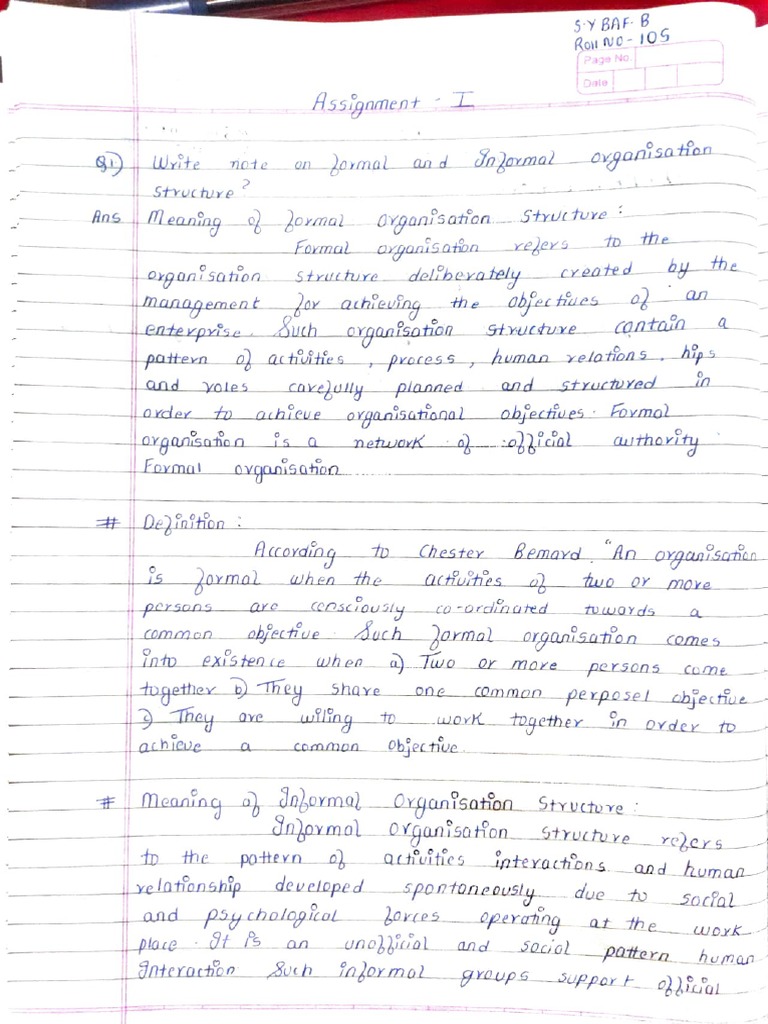 S.Y BAF-B
Roll NO-105
Page No.
Date
Assignment - I
Q1) Write note on formal and Informal organisation
structure?
Ans Meaning of formal organisation structure:
Formal organisation refers to the
organisation structure deliberately created by the
management for achieving the objectives of an
enterprise. Such organisation structure contain a
pattern of activities, process, human relations, hips
and roles carefully planned and structured in
order to achieve organisational objectives. Formal
organisation is a network of official authority.
Formal organisation
# Definition:
According to Chester Bernard "An organisation
is formal when the activities of two or more
persons are consciously co-ordinated towards a
common objective. Such formal organisation comes
into existence when a) Two or more persons come
together b) They share one common perposel objective
c) They are wiling to work together in order to
achieve a common objective.
# Meaning of Informal Organisation Structure:
Informal organisation structure refers
to the pattern of activities interactions and human
relationship developed spontaneously due to social
and psychological forces operating at the work
place. It is an unofficial and social pattern human
Interaction Such informal groups support official